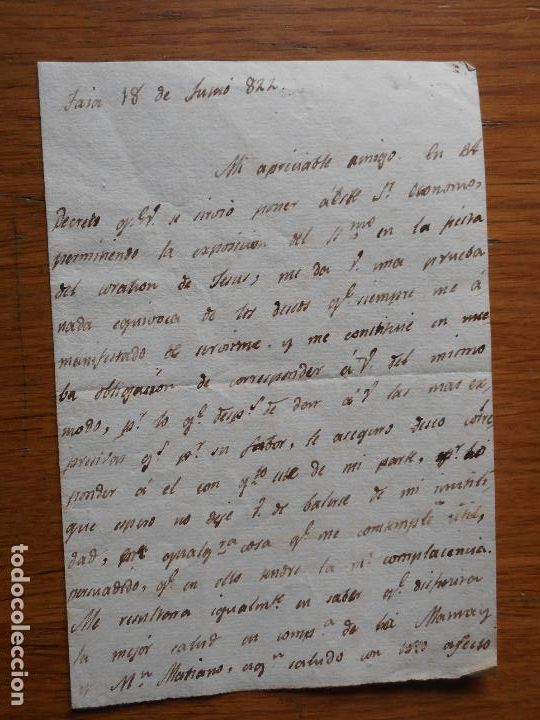 18 de Junio 822.
Mi apreciable amigo. En el
Decreto q.e V. se sirvió poner á este S.r Economo,
permitiendo la exposicion del S.mo en la fiesta
del corazon de Jesus, me da V. una prueba
nada equivoca de los deseos q.e siempre me á
manifestado de servirme, y me constituie en nue
ba obligacion de corresponder á V. del mismo
modo, p.r lo q.e desp.s de dar á V. las mas ex
presivas g.s p.r su fabor, le aseguro deseo corres
ponder á el con q.to de mi parte, p.r lo
que espero no deje V. de balerse de mi inutili
dad, en qualq.ra cosa q.e me contemple util,
persuadido, q.e en ello tendre la m.r complacencia.
Me resultara igualm.te en saber q.e disfruta
la mejor salud en comp.a de la Mama y
M.n Mariano, a q.n saludo con todo afecto
todocoleccion